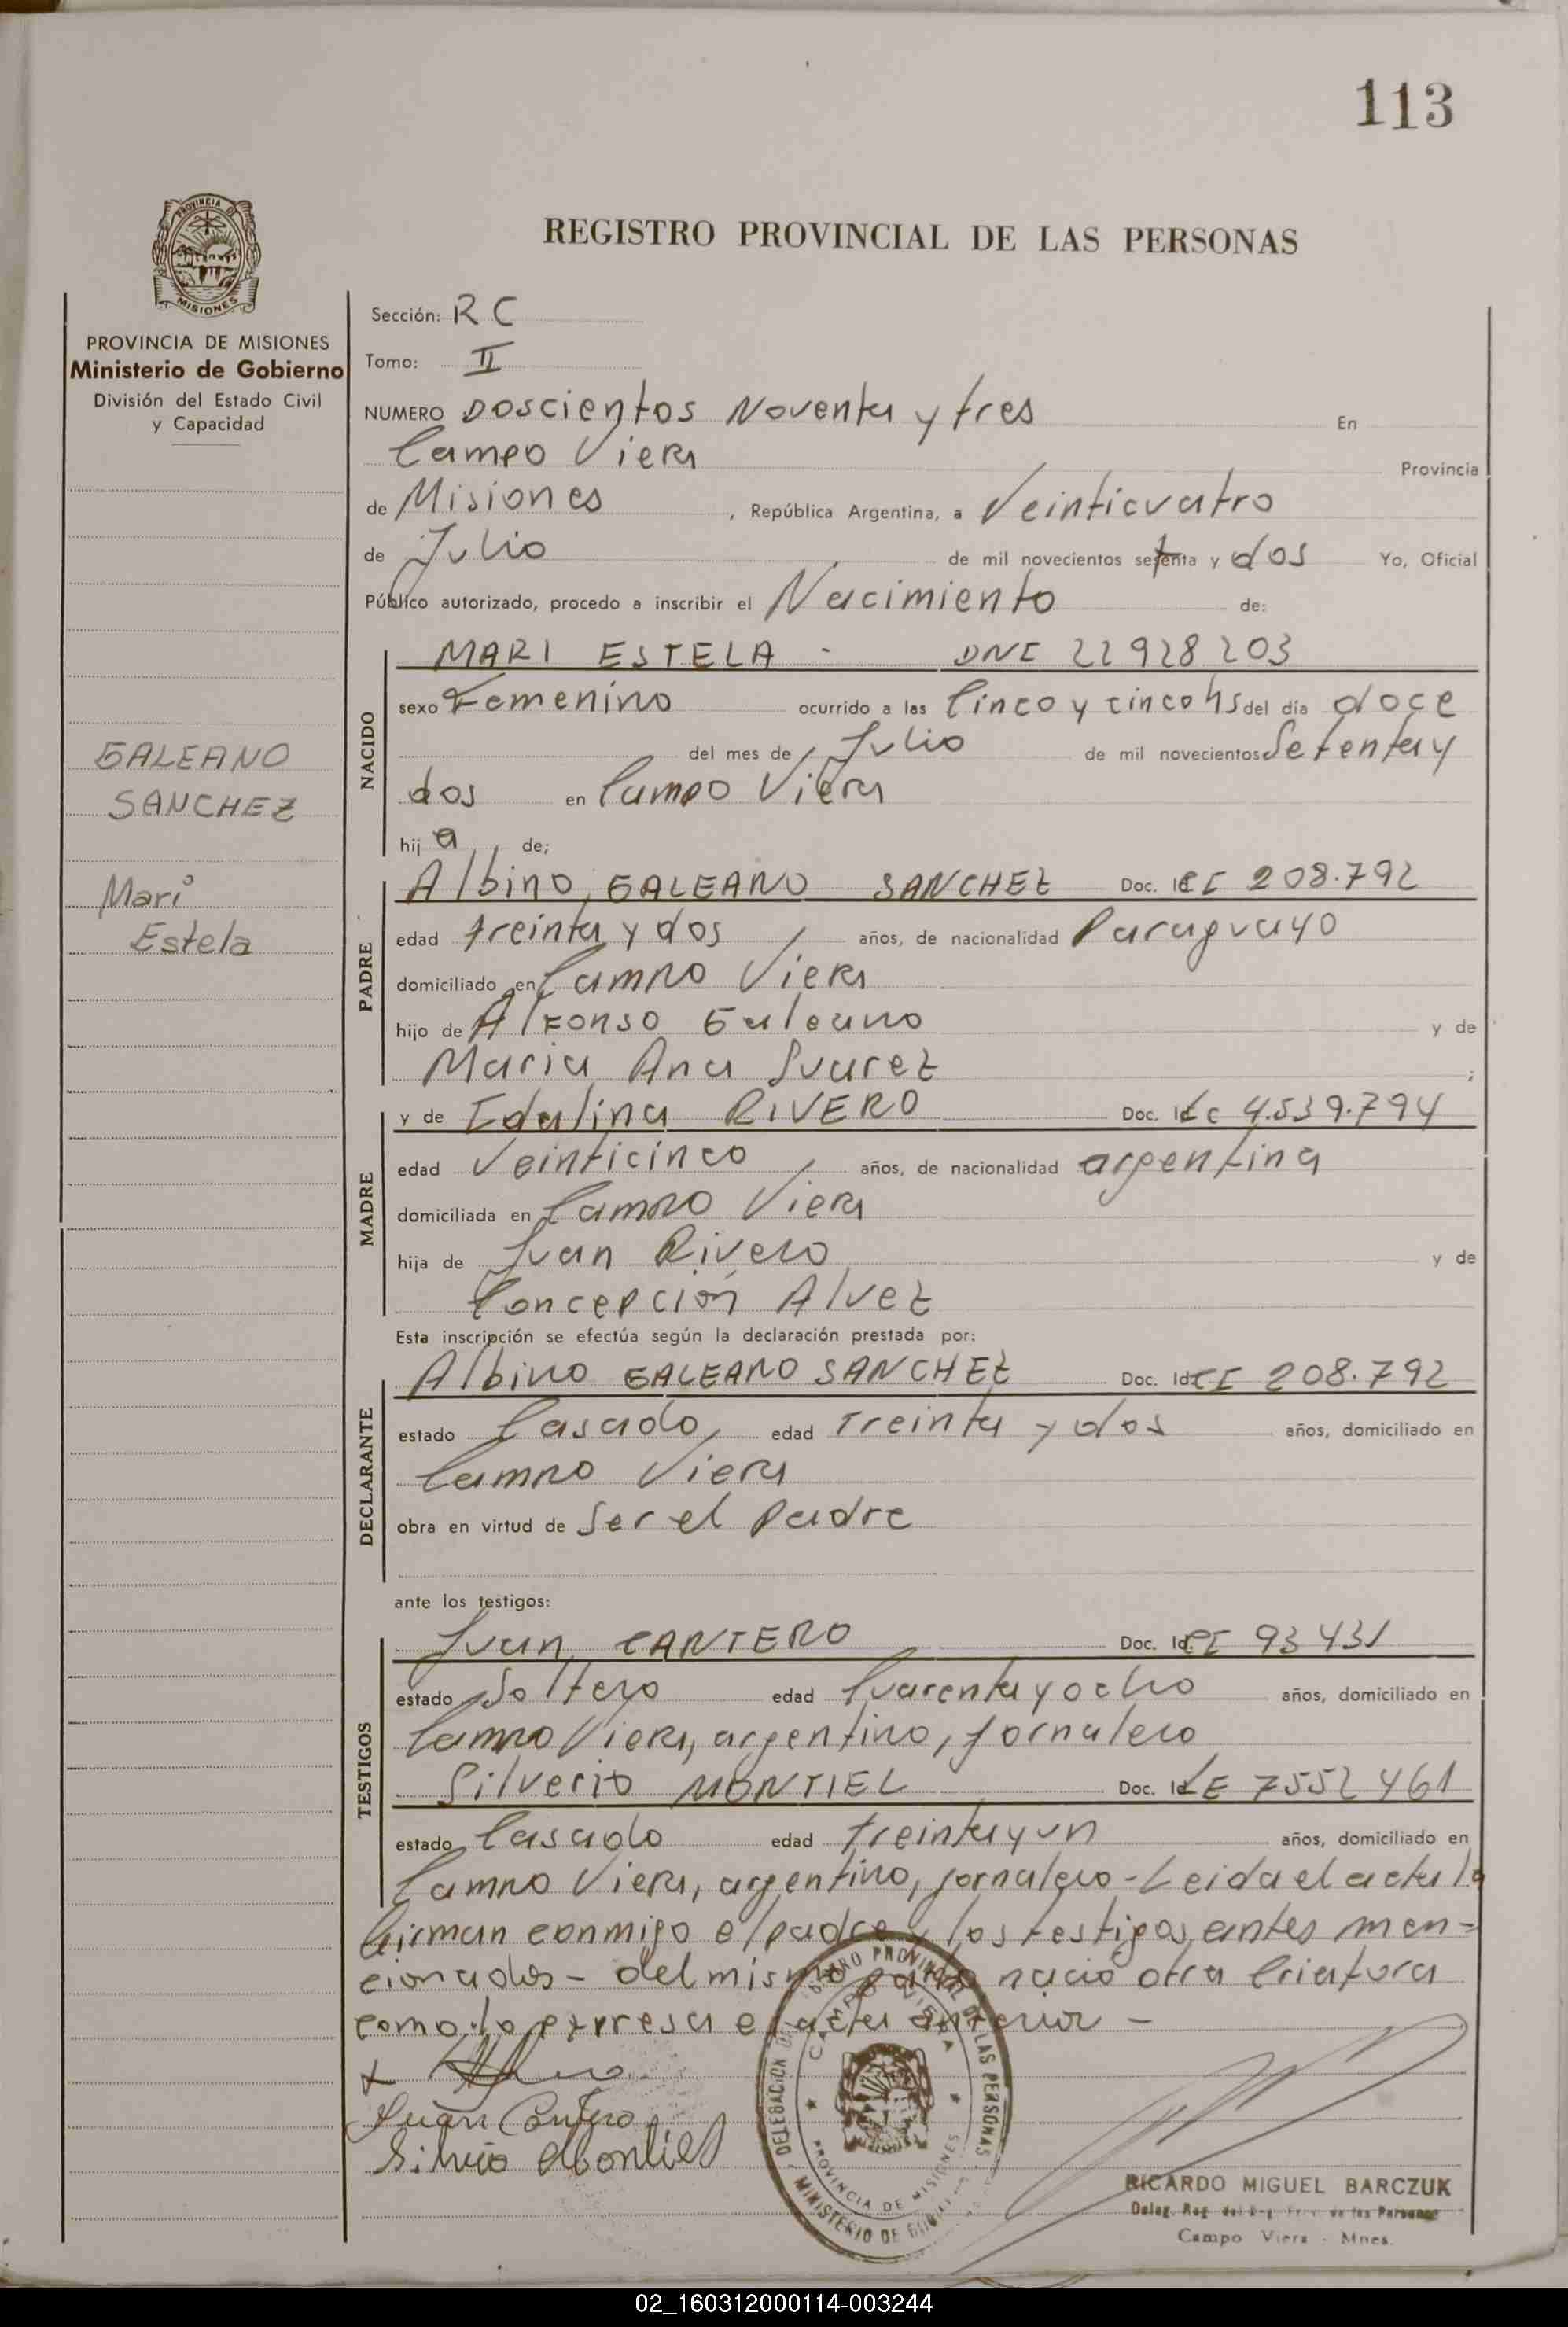 113
REGISTRO PROVINCIAL DE LAS PERSONAS
PROVINCIA DE MISIONES
PROVINCIA DE MISIONES
Ministerio de Gobierno
División del Estado Civil
y Capacidad
GALEANO
SANCHEZ
Mari
Estela
Sección: R C
Tomo: II
NUMERO Doscientos Noventa y tres En
Campo Viera Provincia
de Misiones, República Argentina, a Veinticuatro
de Julio de mil novecientos setenta y dos Yo, Oficial
Público autorizado, procedo a inscribir el Nacimiento de:
NACIDO
MARI ESTELA - DNI 22928203
sexo Femenino ocurrido a las Cinco y cinco hs del día doce
del mes de Julio de mil novecientos Setenta y
dos en Campo Viera
hij a de;
PADRE
Albino GALEANO SANCHEZ Doc. Id. CI 208.792
edad treinta y dos años, de nacionalidad Paraguayo
domiciliado en Campo Viera
hijo de Alfonso Galeano y de
Maria Ana Suarez ;
MADRE
y de Idalina RIVERO Doc. Id. LC 4.539.794
edad Veinticinco años, de nacionalidad argentina
domiciliada en Campo Viera
hija de Juan Rivero y de
Concepción Alvez
Esta inscripción se efectúa según la declaración prestada por:
DECLARANTE
Albino GALEANO SANCHEZ Doc. Id. CI 208.792
estado Casado edad Treinta y dos años, domiciliado en
Campo Viera
obra en virtud de Ser el Padre
ante los testigos:
TESTIGOS
Juan CANTERO Doc. Id. CI 93431
estado Soltero edad Cuarenta y ocho años, domiciliado en
Campo Viera, argentino, jornalero
Silverio MONTIEL Doc. Id. LE 7552461
estado Casado edad treinta y un años, domiciliado en
Campo Viera, argentino, jornalero - Leida el acta la
firman conmigo el padre y los testigos antes men-
cionados - del mismo parto nacio otra Criatura
como lo expresa el acta anterior -
Juan Cantero
Silverio Montiel
DELEGACION REGISTRO PROVINCIAL DE LAS PERSONAS
CAMPO VIERA
PROVINCIA DE MISIONES
MINISTERIO DE GOBIERNO
RICARDO MIGUEL BARCZUK
Deleg. Reg. del Reg. Prov. de las Personas
Campo Viera - Mnes.
02_160312000114-003244